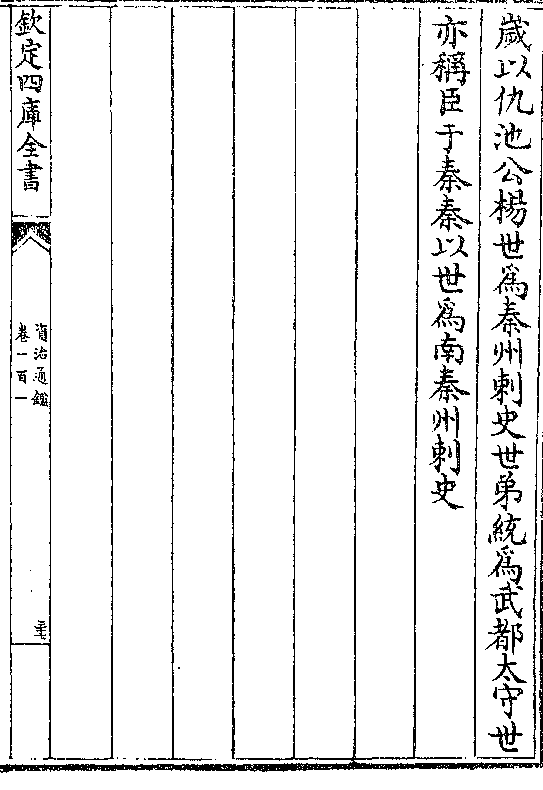 歲以仇池公楊世爲秦州刺史世弟統爲武都太守世
亦稱臣于秦秦以世爲南秦州刺史
欽定四庫全書
資治通鑑
卷一百一